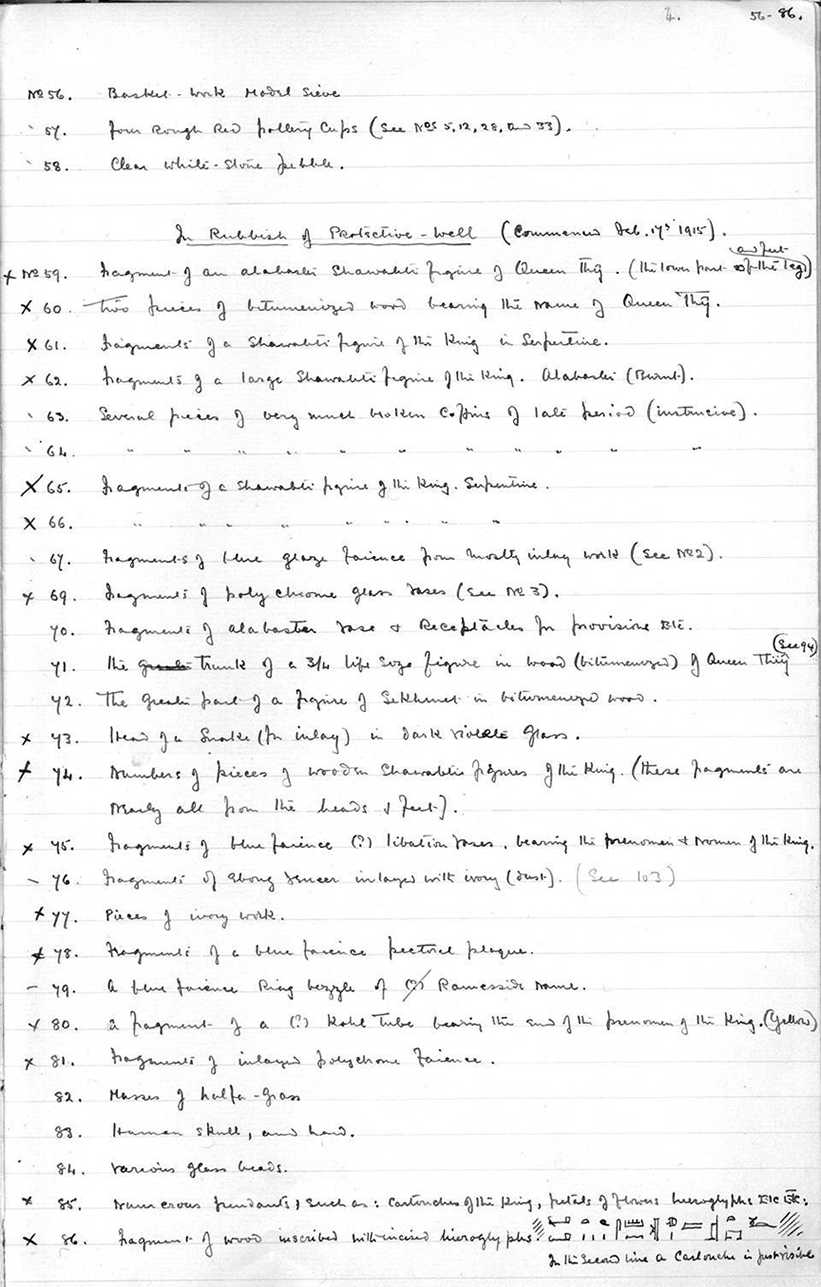 4. 56-86.
No 56. Basket-work Model Sieve
57. Four Rough Red pottery Cups (See Nos 5, 12, 28, and 33).
58. Clear white-stone pebble.
In Rubbish of Protective-Well (Commenced Feb. 17th 1915).
x No 59. Fragment of an alabaster Shawabti figure of Queen Thiy. (the lower part of the legs and feet)
x 60. Two pieces of bitumenized wood bearing the name of Queen Thiy.
x 61. Fragments of a Shawabti figure of the King in Serpentine.
x 62. Fragments of a large Shawabti figure of the King. Alabaster (Burnt).
63. Several pieces of very much broken Coffins of late period (intrusive).
64. " " " " " " " " " " "
x 65. Fragments of a Shawabti figure of the King. Serpentine.
x 66. " " " " " " " "
67. Fragments of blue glaze faience from mostly inlay work (See No 2).
x 69. Fragments of polychrome glass vases (See No 3).
70. Fragments of alabaster vase & Receptacles for provisions Etc.
71. The trunk of a 3/4 life size figure in wood (bitumenized) of Queen Thiy (See 94)
72. The greater part of a figure of Sekhmet in bitumenized wood.
x 73. Head of a Snake (for inlay) in dark violet Glass.
x 74. Numbers of pieces of wooden Shawabti figures of the King. (these fragments are
nearly all from the heads & feet).
x 75. Fragments of blue faience (?) libation vases, bearing the prenomen & nomen of the King.
- 76. Fragments of Ebony veneer inlayed with ivory (dust). (See 103)
x 77. Pieces of ivory work.
x 78. Fragments of a blue faience pectoral plaque.
- 79. A blue faience Ring bezzle of (?) Ramesside name.
x 80. a fragment of a (?) Kohl Tube bearing the end of the prenomen of the King. (Yellow)
x 81. Fragments of inlayed polychrome faience.
82. Masses of halfa-grass
83. Human skull, and hand.
84. Various glass beads.
x 85. Numerous pendants, such as: Cartouches of the King, petals of flowers hieroglyphs Etc Etc.
x 86. Fragment of wood inscribed with incised hieroglyphs.
In the Second line a Cartouche is just visible